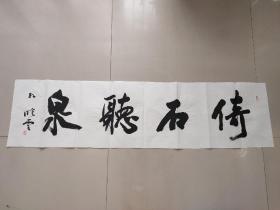 倚石聽泉